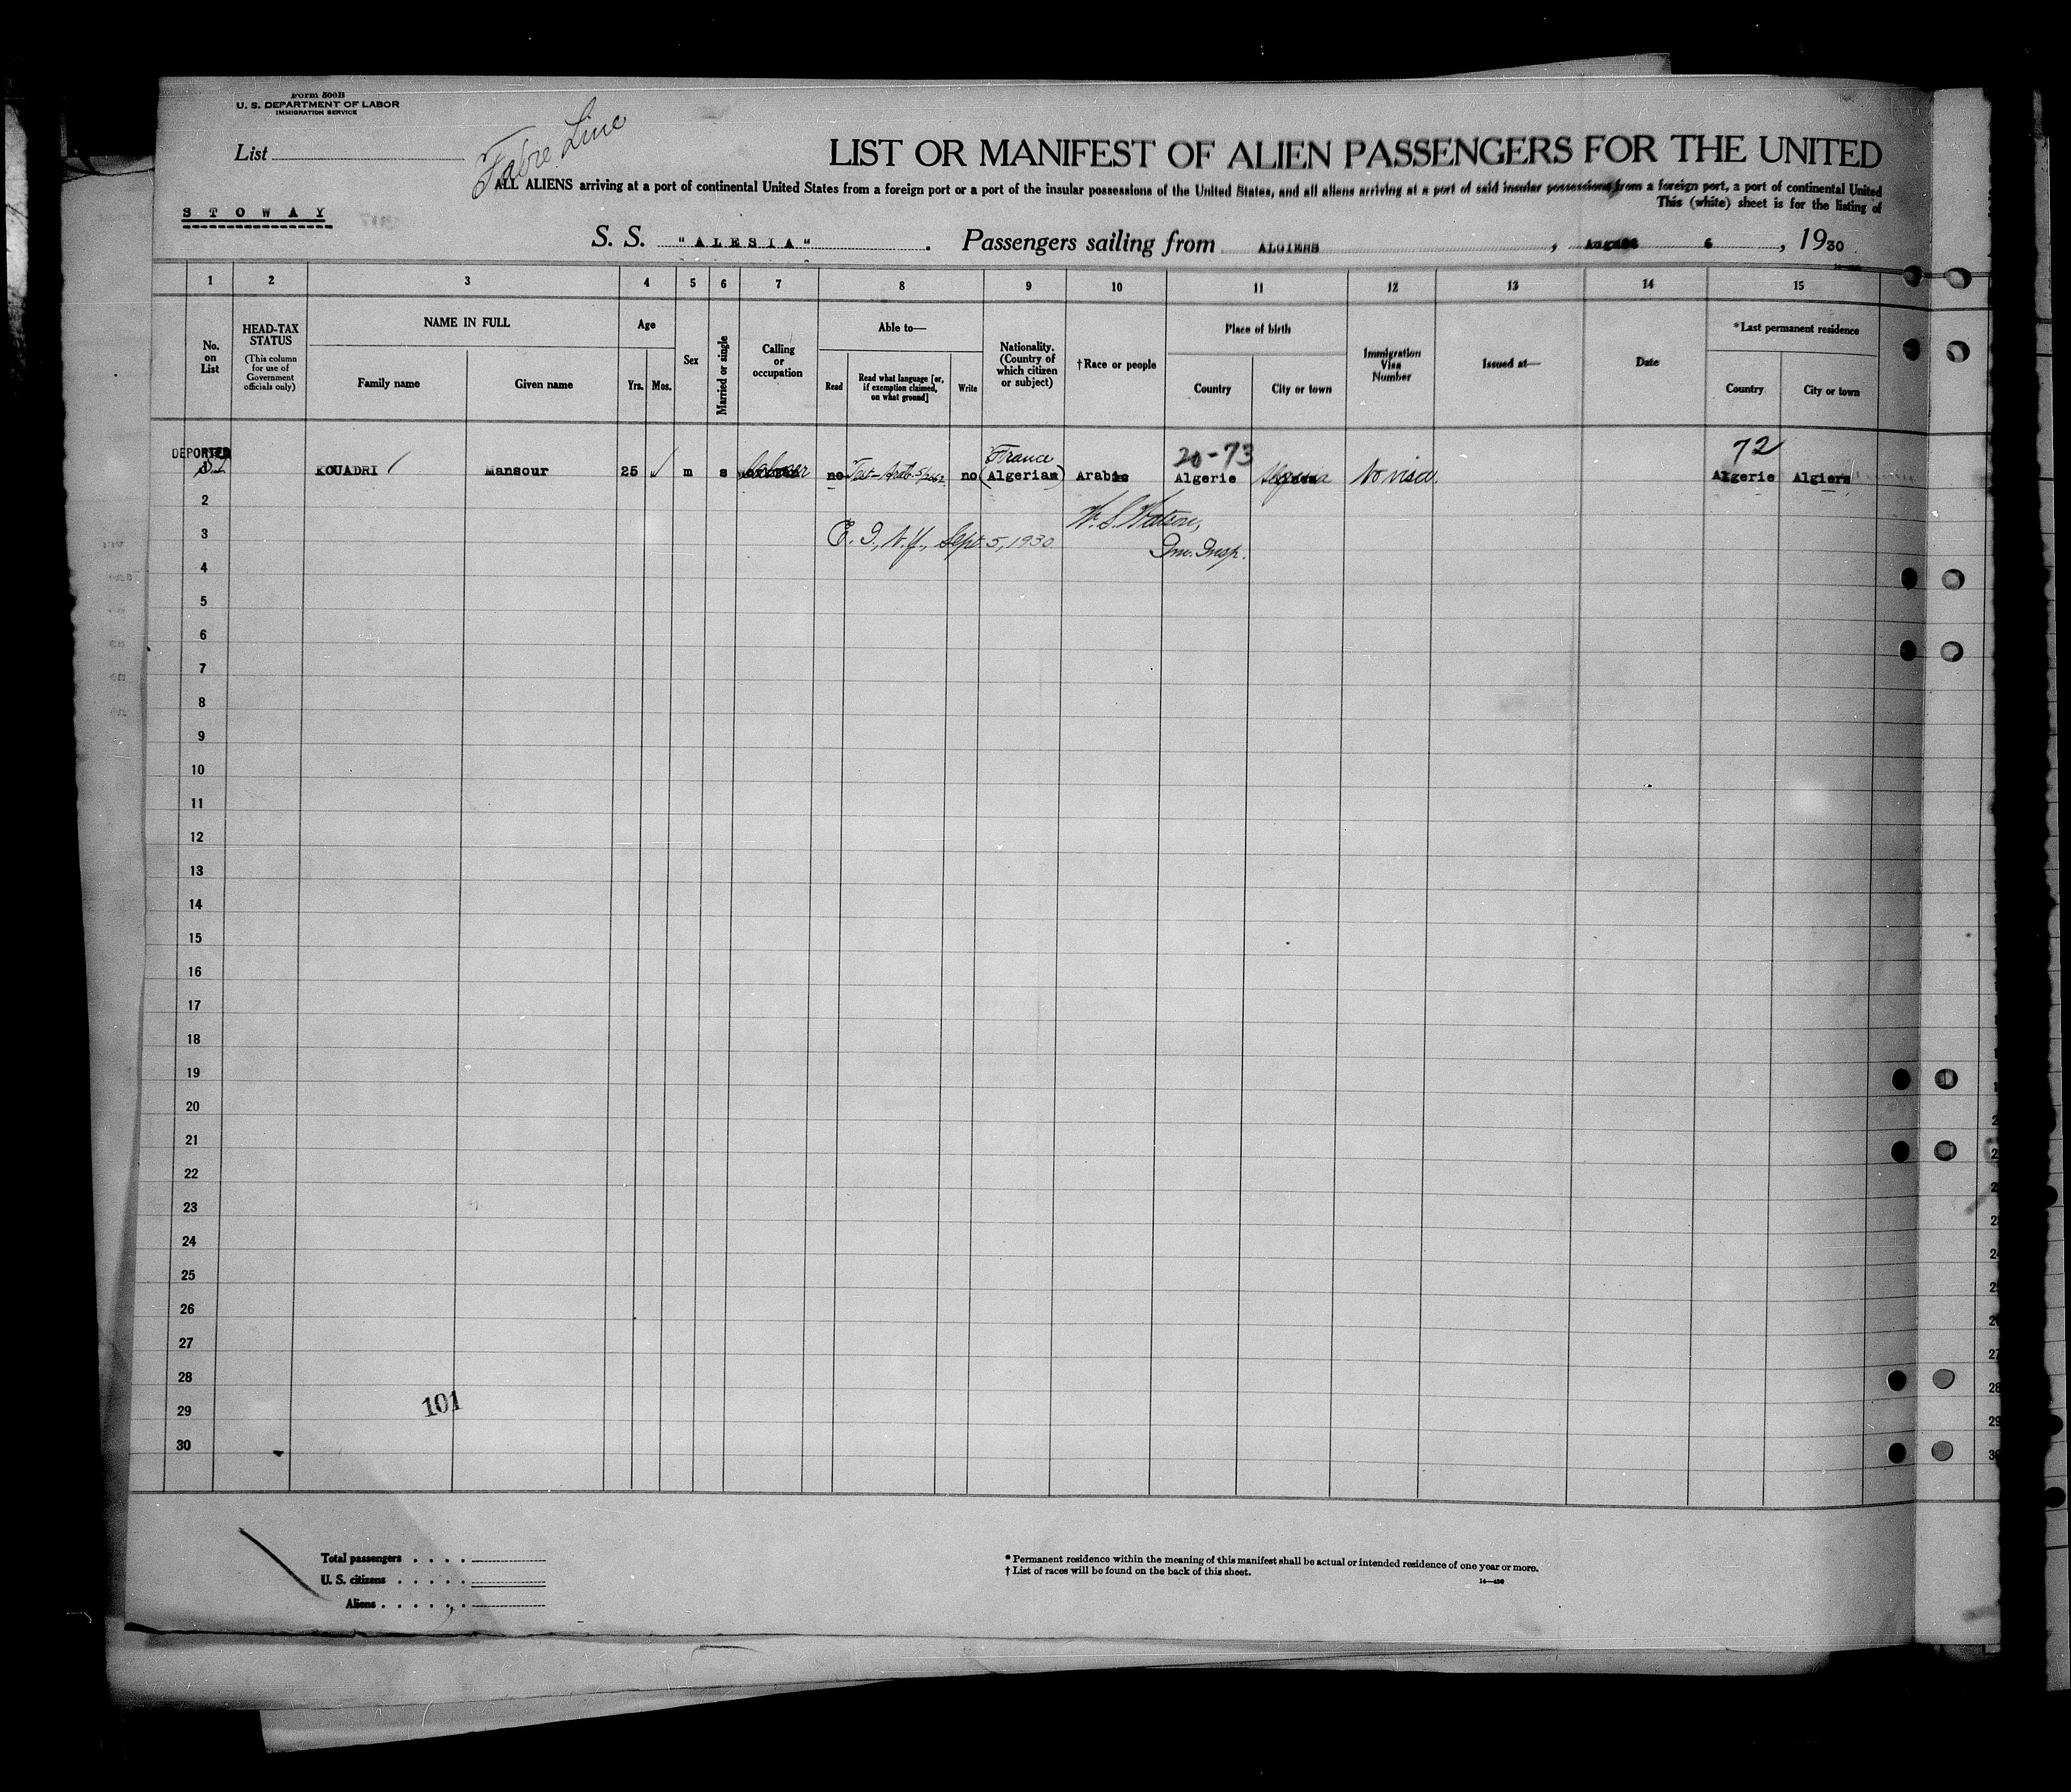 Form 500B
U. S. DEPARTMENT OF LABOR
IMMIGRATION SERVICE
List
Fabre Line
LIST OR MANIFEST OF ALIEN PASSENGERS FOR THE UNITED
ALL ALIENS arriving at a port of continental United States from a foreign port or a port of the insular possessions of the United States, and all aliens arriving at a port of said insular possessions from a foreign port, a port of continental United
This (white) sheet is for the listing of
STOWAY
S. S. "ALESIA". Passengers sailing from ALGIERS, August 6, 1930
1 2 3 4 5 6 7 8 9 10 11 12 13 14 15
No. on List
HEAD-TAX STATUS (This column for use of Government officials only)
NAME IN FULL
Family name
Given name
Age
Yrs. Mos.
Sex
Married or single
Calling or occupation
Able to—
Read
Read what language [or, if exemption claimed, on what ground]
Write
Nationality. (Country of which citizen or subject)
† Race or people
Place of birth
Country
City or town
Immigration Visa Number
Issued at—
Date
*Last permanent residence
Country
City or town
DEPORTED
France
20-73
72
1 KOUADRI Mansour 25 m s Laborer no no (Algerian) Arabic Algerie No visa. Algerie Algiers
2
3
E. I., N.Y., Sept. 5, 1930. W. S. Watson,
Im. Insp.
4
5
6
7
8
9
10
11
12
13
14
15
16
17
18
19
20
21
22
23
24
25
26
27
28
29
30
101
Total passengers . . . .
U. S. citizens . . . . .
Aliens . . . . . .
* Permanent residence within the meaning of this manifest shall be actual or intended residence of one year or more.
† List of races will be found on the back of this sheet.